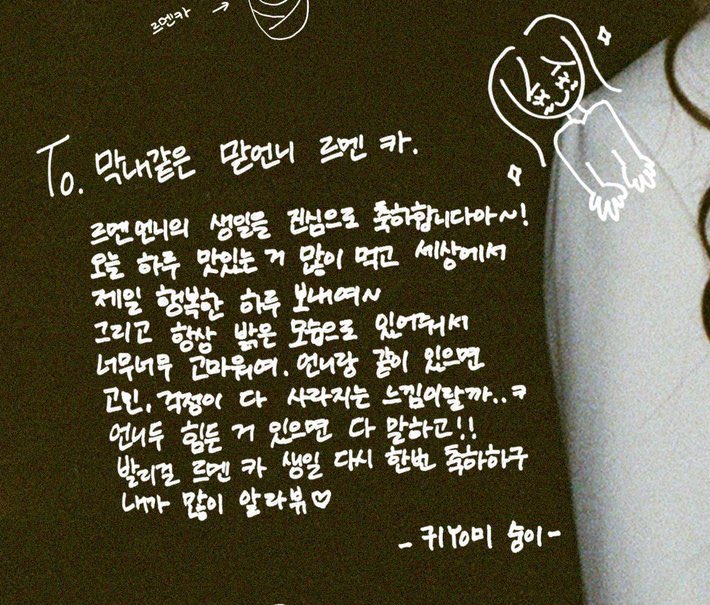 르멘카 →
To. 막내같은 맏언니 르멘 카.
르멘언니의 생일을 진심으로 축하합니다아~!
오늘 하루 맛있는 거 많이 먹고 세상에서
제일 행복한 하루 보내여~
그리고 항상 밝은 모습으로 있어줘서
너무너무 고마워여. 언니랑 같이 있으면
고민, 걱정이 다 사라지는 느낌이랄까..ㅋ
언니두 힘든 거 있으면 다 말하고!!
발리걸 르멘 카 생일 다시 한번 축하하구
내가 많이 알라뷰♡
- 귀Yo미 숭이-